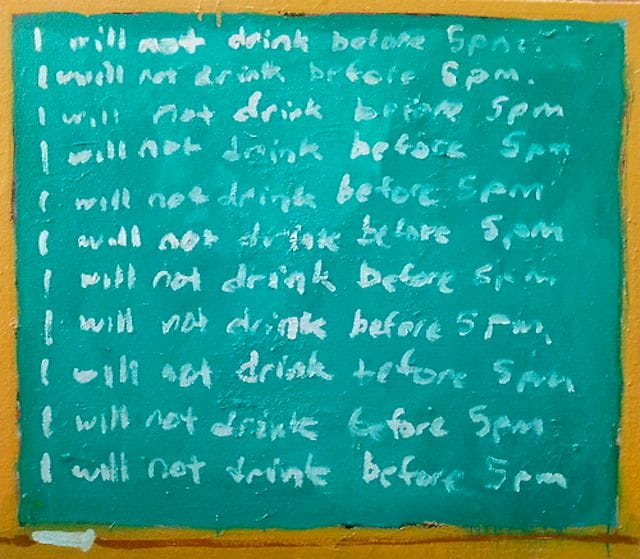 I will not drink before 5pm.
I will not drink before 5pm.
I will not drink before 5pm
I will not drink before 5pm
I will not drink before 5pm
I will not drink before 5pm
I will not drink before 5pm
I will not drink before 5pm
I will not drink before 5pm
I will not drink before 5pm
I will not drink before 5pm